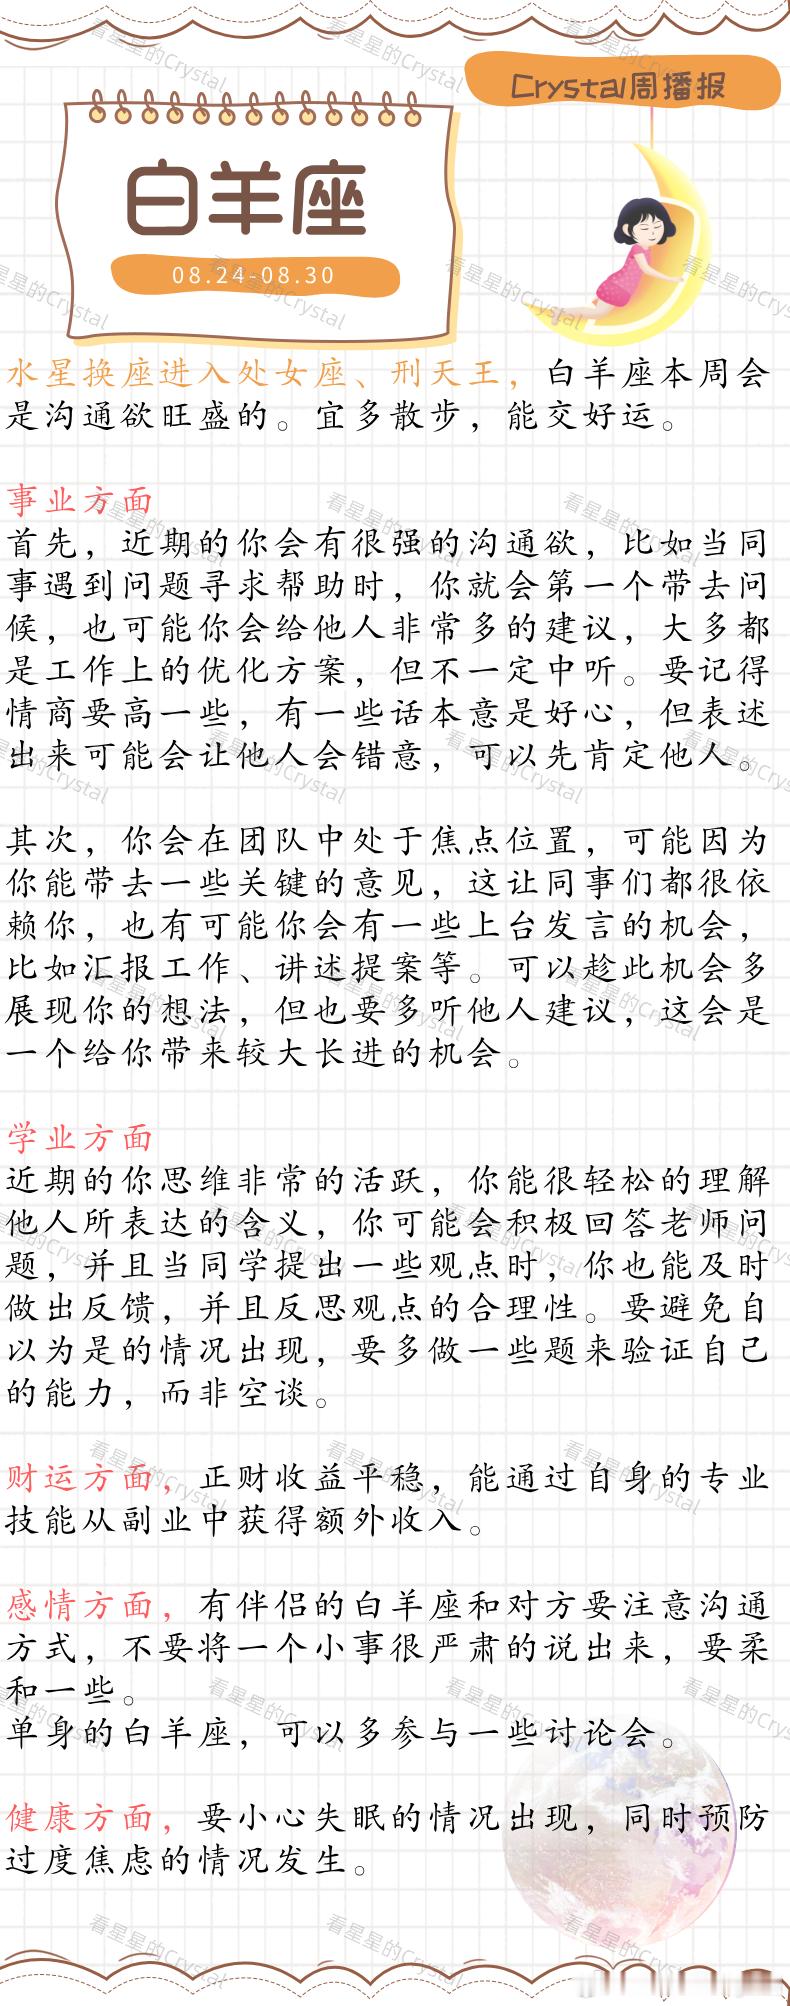 Crystal周播报
白羊座
08.24-08.30
水星换座进入处女座、刑天王，白羊座本周会
是沟通欲旺盛的。宜多散步，能交好运。
事业方面
首先，近期的你会有很强的沟通欲，比如当同
事遇到问题寻求帮助时，你就会第一个带去问
候，也可能你会给他人非常多的建议，大多都
是工作上的优化方案，但不一定中听。要记得
情商要高一些，有一些话本意是好心，但表述
出来可能会让他人会错意，可以先肯定他人。
其次，你会在团队中处于焦点位置，可能因为
你能带去一些关键的意见，这让同事们都很依
赖你，也有可能你会有一些上台发言的机会，
比如汇报工作、讲述提案等。可以趁此机会多
展现你的想法，但也要多听他人建议，这会是
一个给你带来较大长进的机会。
学业方面
近期的你思维非常的活跃，你能很轻松的理解
他人所表达的含义，你可能会积极回答老师问
题，并且当同学提出一些观点时，你也能及时
做出反馈，并且反思观点的合理性。要避免自
以为是的情况出现，要多做一些题来验证自己
的能力，而非空谈。
财运方面，正财收益平稳，能通过自身的专业
技能从副业中获得额外收入。
感情方面，有伴侣的白羊座和对方要注意沟通
方式，不要将一个小事很严肃的说出来，要柔
和一些。
单身的白羊座，可以多参与一些讨论会。
健康方面，要小心失眠的情况出现，同时预防
过度焦虑的情况发生。
看星星的Crystal